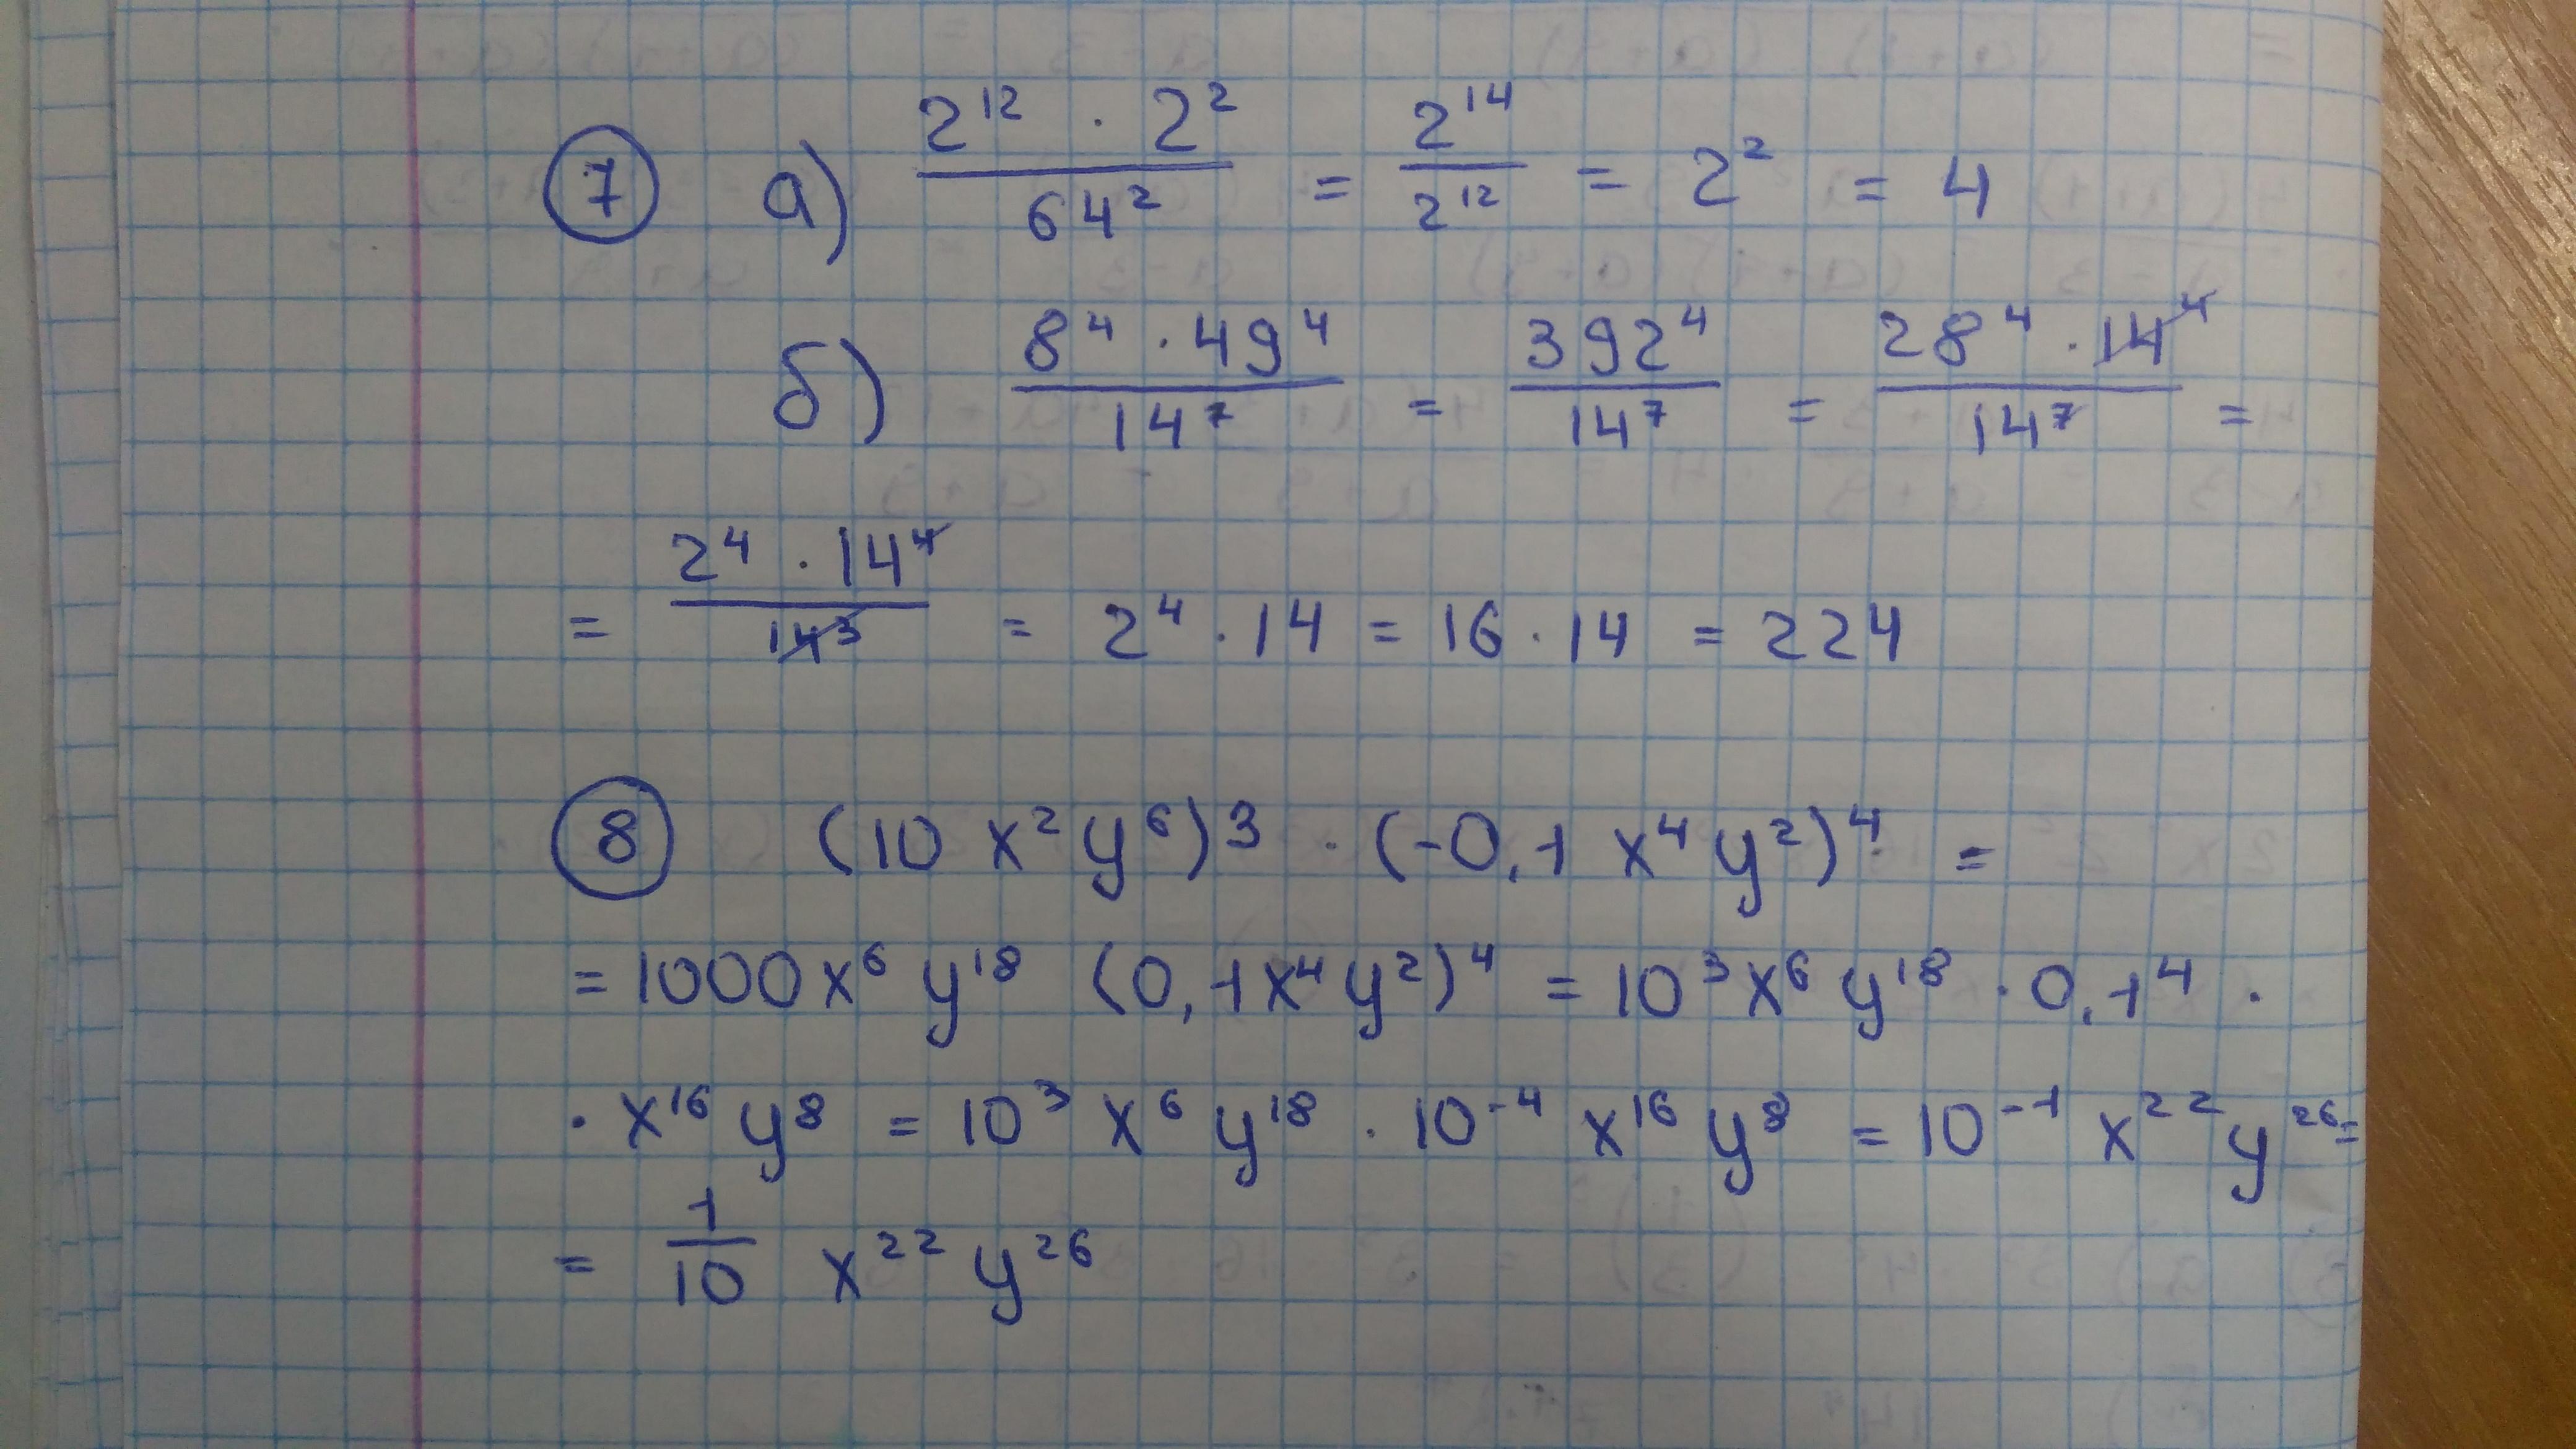 7 а) (2¹² · 2²)/64² = 2¹⁴/2¹² = 2² = 4
б) (8⁴ · 49⁴)/14⁷ = 392⁴/14⁷ = (28⁴ · 14⁴)/14⁷ =
= (2⁴ · 14⁴)/14³ = 2⁴ · 14 = 16 · 14 = 224
8 (10 x² y⁶)³ · (-0,1 x⁴ y²)⁴ =
= 1000x⁶ y¹⁸ (0,1x⁴ y²)⁴ = 10³x⁶ y¹⁸ · 0,1⁴ ·
· x¹⁶ y⁸ = 10³ x⁶ y¹⁸ · 10⁻⁴ x¹⁶ y⁸ = 10⁻¹ x²² y²⁶ =
= 1/10 x²² y²⁶